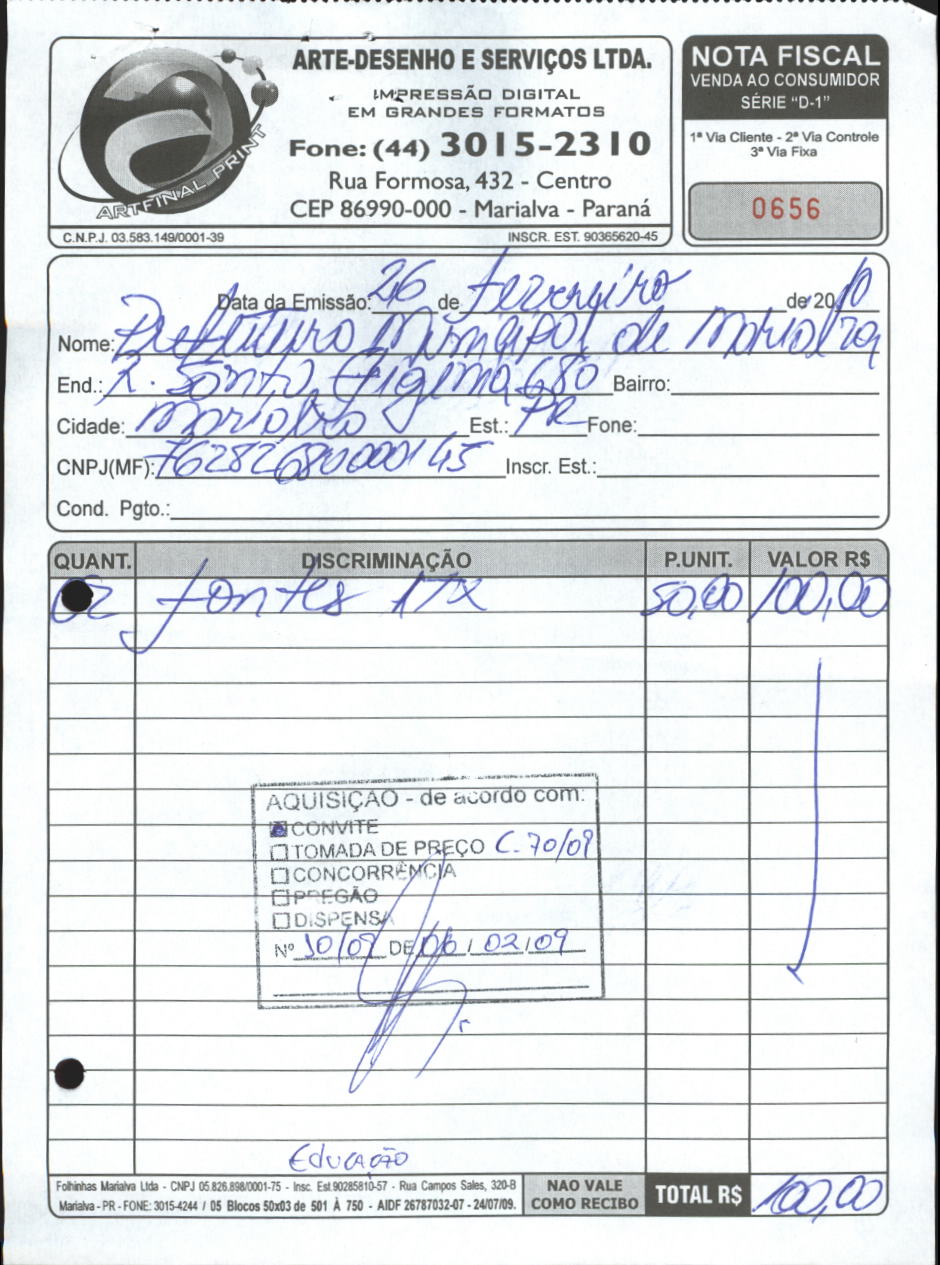 ARTFINAL PRINT
ARTE-DESENHO E SERVIÇOS LTDA.
IMPRESSÃO DIGITAL
EM GRANDES FORMATOS
Fone: (44) 3015-2310
Rua Formosa, 432 - Centro
CEP 86990-000 - Marialva - Paraná
C.N.P.J. 03.583.149/0001-39 INSCR. EST. 90365620-45
NOTA FISCAL
VENDA AO CONSUMIDOR
SÉRIE "D-1"
1ª Via Cliente - 2ª Via Controle
3ª Via Fixa
0656
Data da Emissão: 26 de fevereiro de 2010
Nome: Prefeitura Municipal de Marialva
End.: R. Santa Efigenia 680 Bairro:
Cidade: Marialva Est.: PR Fone:
CNPJ(MF): 76282680000145 Inscr. Est.:
Cond. Pgto.:
QUANT. DISCRIMINAÇÃO P.UNIT. VALOR R$
02 fontes 50,00 100,00
AQUISIÇÃO - de acordo com:
CONVITE
TOMADA DE PREÇO C. 70/09
CONCORRÊNCIA
PREGÃO
DISPENSA
Nº 10/09 DE 06/02/09
Educação
Folhinhas Marialva Ltda - CNPJ 05.826.898/0001-75 - Insc. Est.90285810-57 - Rua Campos Sales, 320-B
Marialva - PR - FONE: 3015-4244 / 05 Blocos 50x03 de 501 À 750 - AIDF 26787032-07 - 24/07/09.
NAO VALE
COMO RECIBO
TOTAL R$ 100,00